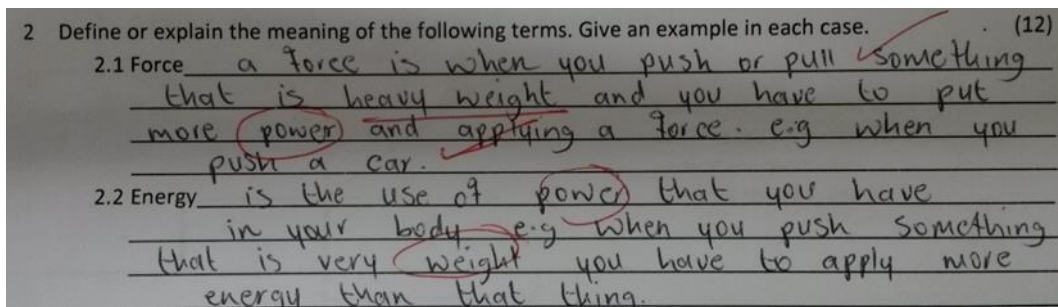 2 Define or explain the meaning of the following terms. Give an example in each case. (12)
2.1 Force a force is when you push or pull something
that is heavy weight and you have to put
more power and applying a force. e.g when you
push a car.
2.2 Energy is the use of power that you have
in your body e.g when you push something
that is very weight you have to apply more
energy than that thing.